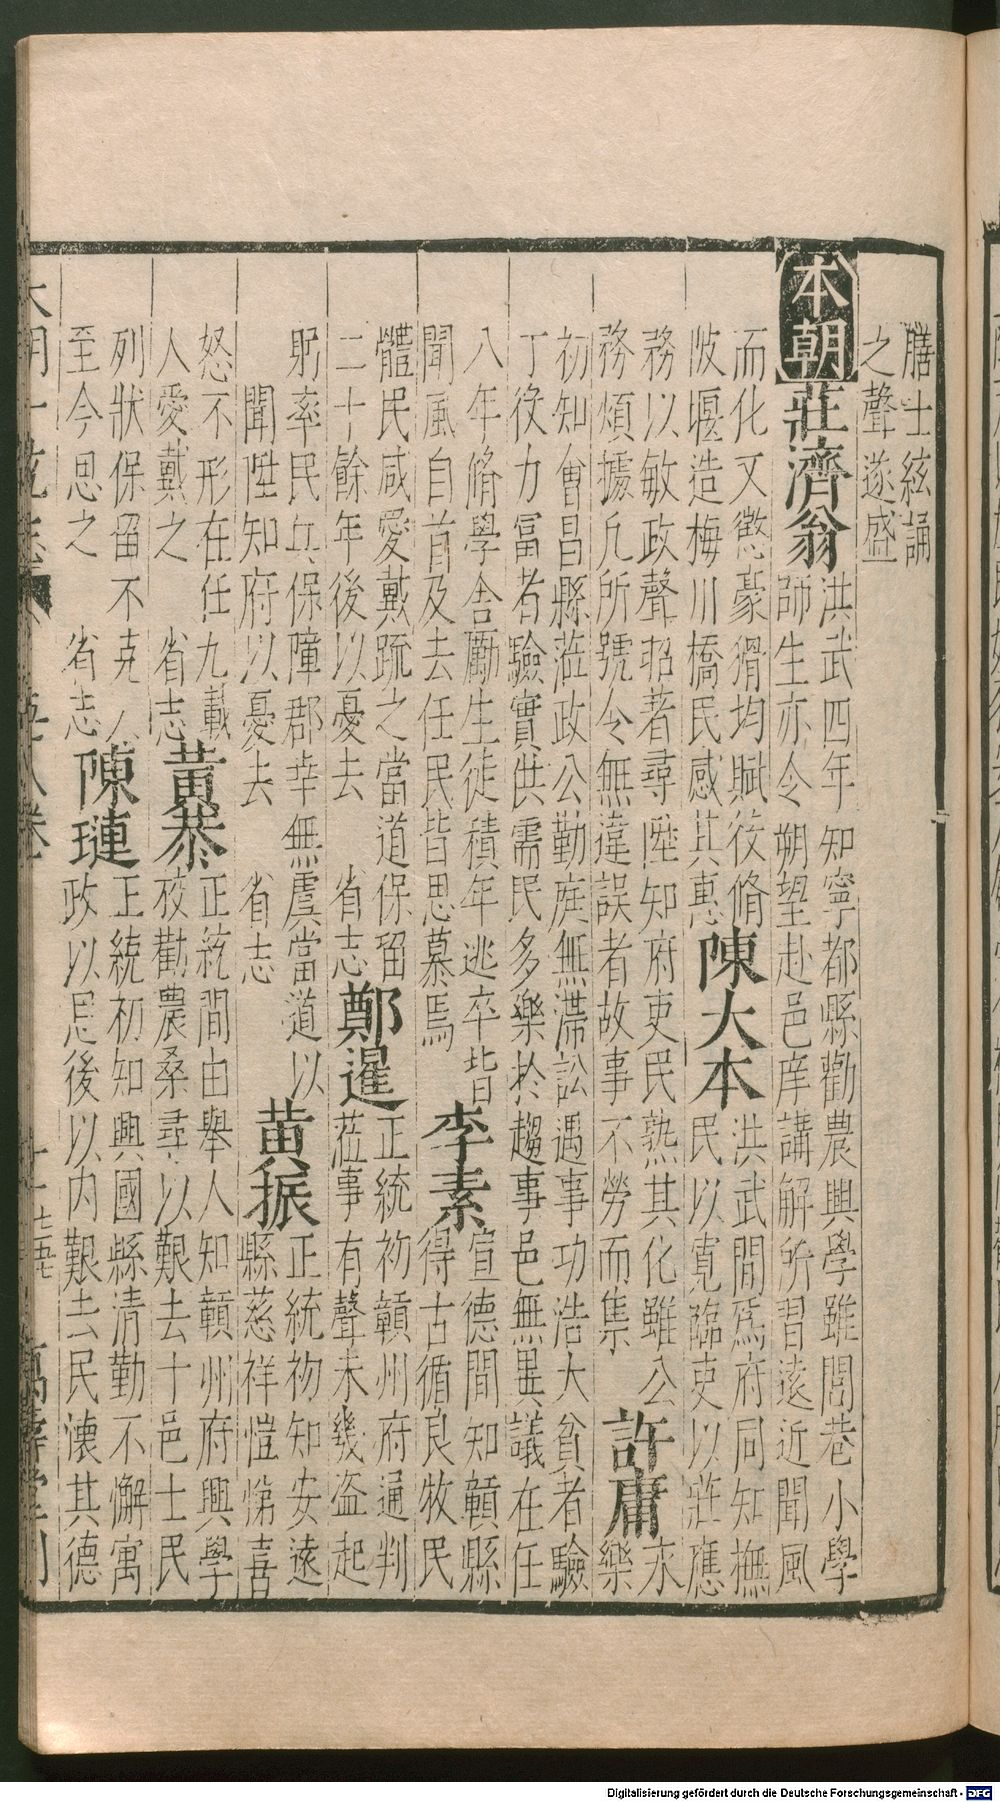 膳士絃誦
之聲遂盛
本朝
莊濟翁
洪武四年知寧都縣勸農興學雖閭巷小學
師生亦令朔望赴邑庠講解所習遠近聞風
而化又懲豪猾均賦役脩
陂堰造梅川橋民感其惠
陳大本
洪武間爲府同知撫
民以寬臨吏以莊應
務以敏政聲昭著尋陞知府吏民熟其化雖公
務煩據凡所號令無違誤者故事不勞而集
許庸
永
樂
初知會昌縣蒞政公勤庭無滯訟遇事功浩大貧者驗
丁役力冨者驗實供需民多樂於趨事邑無異議在任
八年脩學舍勵生徒積年逃卒皆
聞風自首及去任民皆思慕焉
李素
宣德間知贑縣
得古循良牧民
體民咸愛戴疏之當道保留
二十餘年後以憂去 省志
鄭暹
正統初贑州府通判
蒞事有聲未幾盗起
躬率民兵保障郡幸無虞當道以
聞陞知府以憂去 省志
黃振
正統初知安遠
縣慈祥愷悌喜
怒不形在任九載
人愛戴之 省志
黃恭
正統間由舉人知贑州府興學
校勸農桑尋以艱去十邑士民
列狀保留不克
至今思之 省志
陳璉
正統初知興國縣清勤不懈寓
政以恩後以内艱去民懐其德
萬壽堂刊
Digitalisierung gefördert durch die Deutsche Forschungsgemeinschaft - DFG